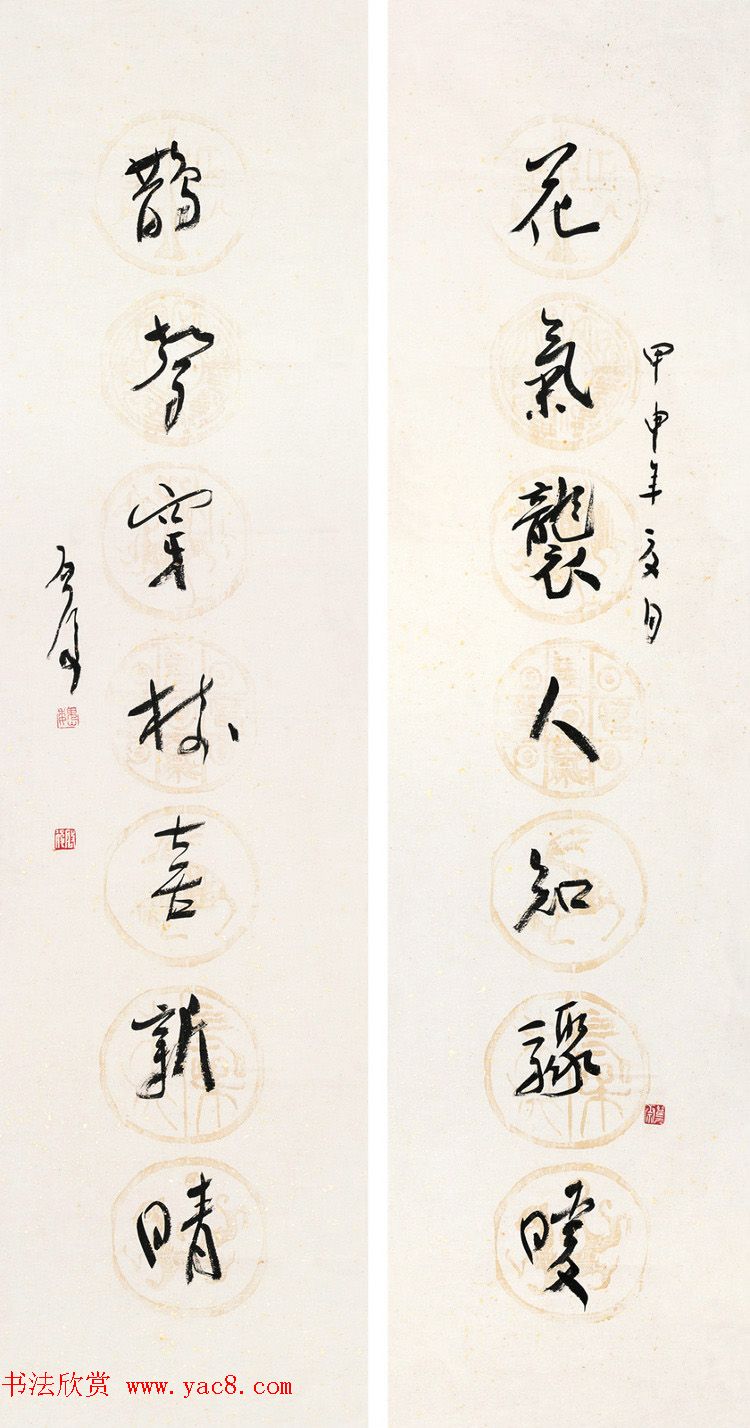 花氣襲人知驟暖
甲申年夏月
鵲聲穿樹喜新晴
书法欣赏 www.yac8.com